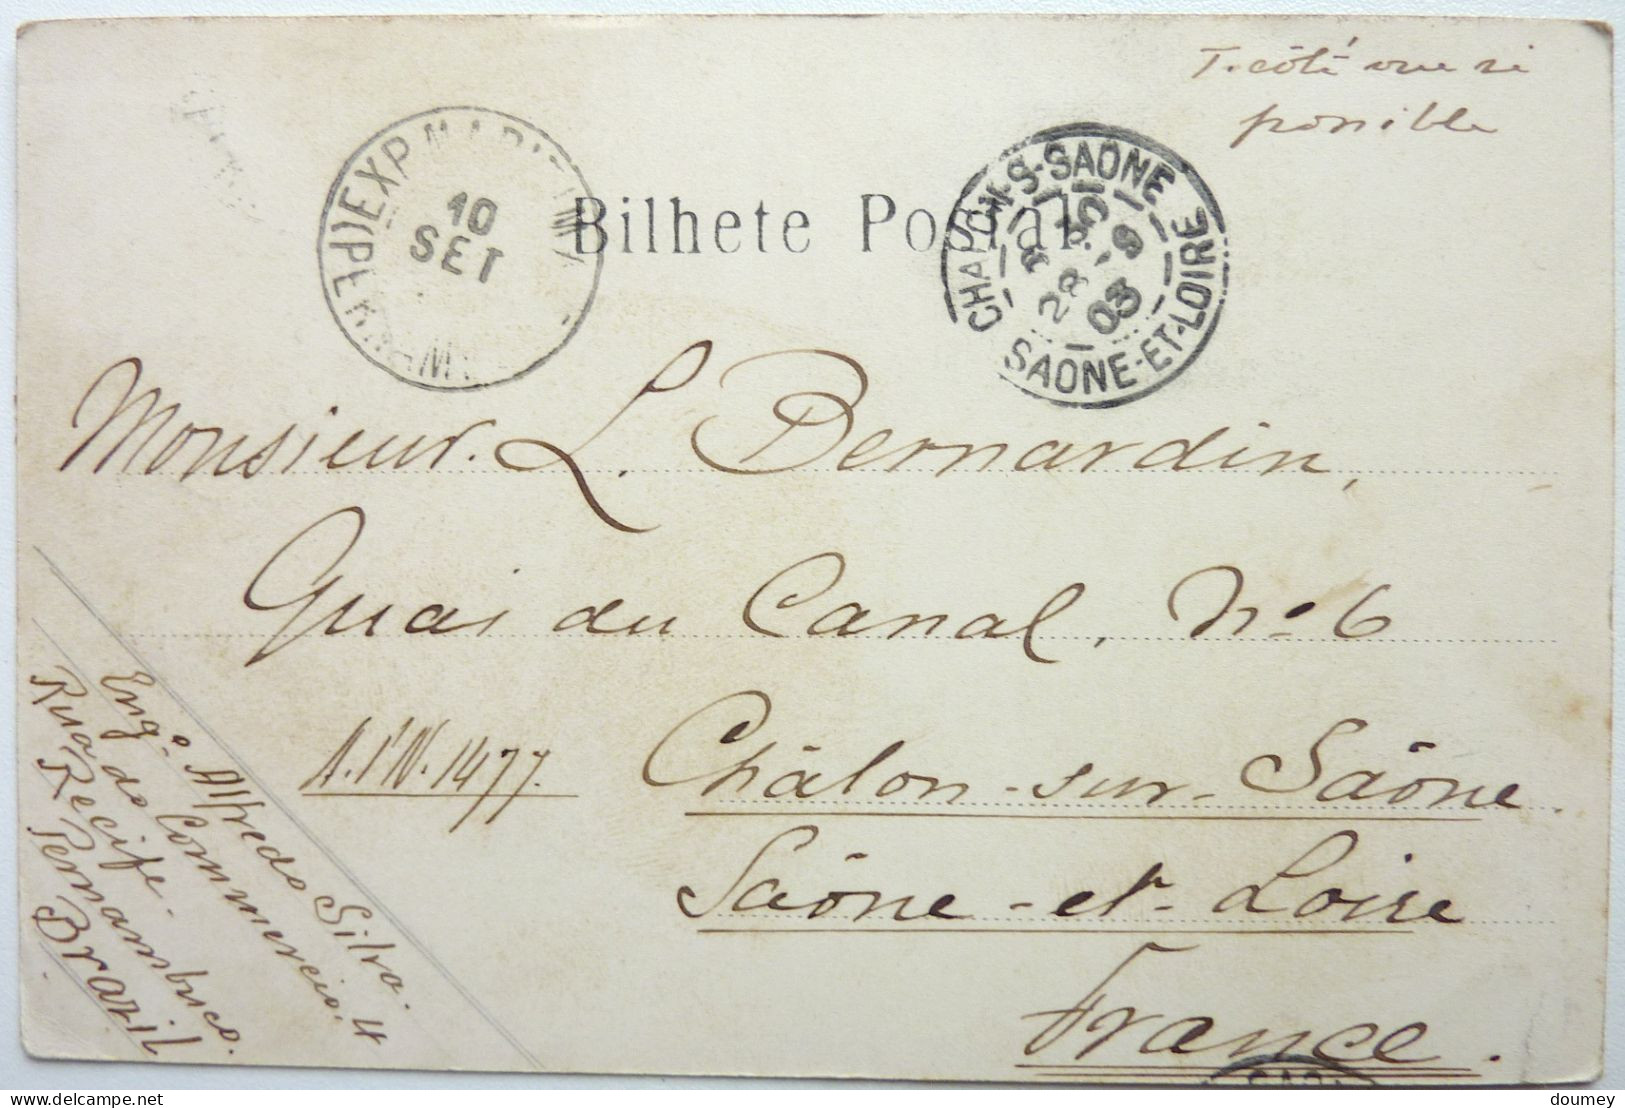 T. côté vue si
possible
EXP. MARITIMA
10
SET
Bilhete Postal
CHALON-S-SAÔNE
28 -9
03
SAONE-ET-LOIRE
Monsieur. L. Bernardin,
Quai du Canal, No. 6
A.I'N. 1477.
Châlon-sur-Saône.
Saône-et-Loire
France.
Engo. Alfredo Silva.
Rua do Commercio. 4
Recife.
Pernambuco.
Brazil
doumey